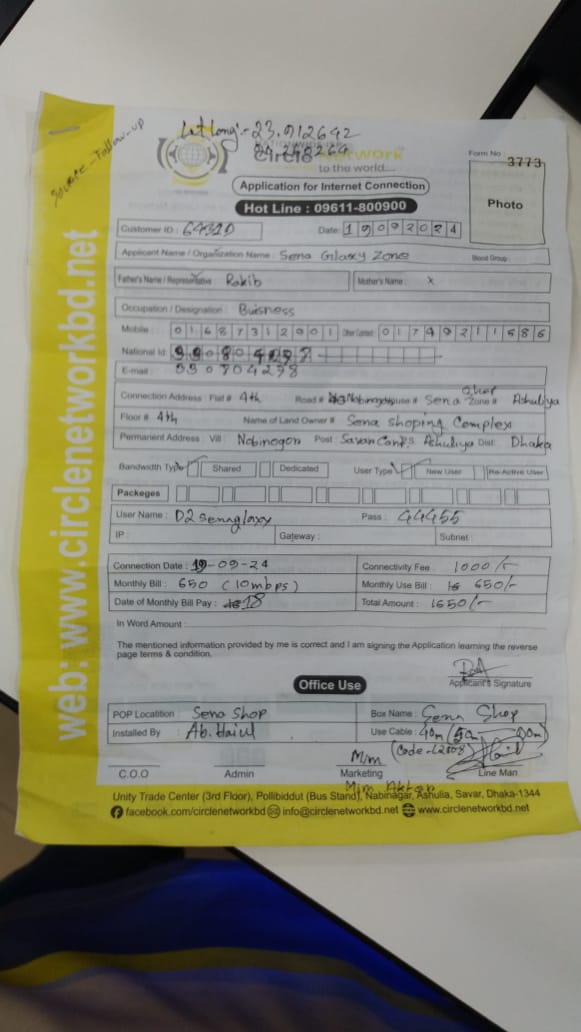 Lat Long:- 23.912642
Source - Follow-up
Circle Network
to the world....
Form No : 3773
Application for Internet Connection
Photo
Hot Line : 09611-800900
Customer ID : Date: 19092024
Applicant Name / Organization Name : Sena Gilaxy Zone Blood Group :
Father's Name / Representative Rakib Mother's Name : x
Occupation / Designation : Buisness
Mobile : 01687312001 Other Contact :
National Id:
E-mail :
Connection Address : Flat # 4th Road # House # Sena Zone # Ashuliya
Floor # 4th Name of Land Owner # Sena Shoping Complex
Permanent Address : Vill : Nobinogon Post : Savar Ashuliya Dist: Dhaka
Bandwidth Type Shared Dedicated User Type New User Re-Active User
Packeges
User Name : Pass : 44455
IP : Gateway : Subnet :
Connection Date : 19-09-24 Connectivity Fee : 1000/-
Monthly Bill : 650 (10mbps) Monthly Use Bill : 650/-
Date of Monthly Bill Pay : 18 Total Amount : 1650/-
In Word Amount :
The mentioned information provided by me is correct and I am signing the Application learning the reverse
page terms & condition.
Applicant's Signature
Office Use
POP Locatition : Sena Shop Box Name : Sena Shop
Installed By : Use Cable :
Mim
C.O.O Admin Marketing Line Man
Mim Akter
Unity Trade Center (3rd Floor), Pollibiddut (Bus Stand), Nabinagar, Ashulia, Savar, Dhaka-1344
facebook.com/circlenetworkbd info@circlenetworkbd.net www.circlenetworkbd.net
web: www.circlenetworkbd.net